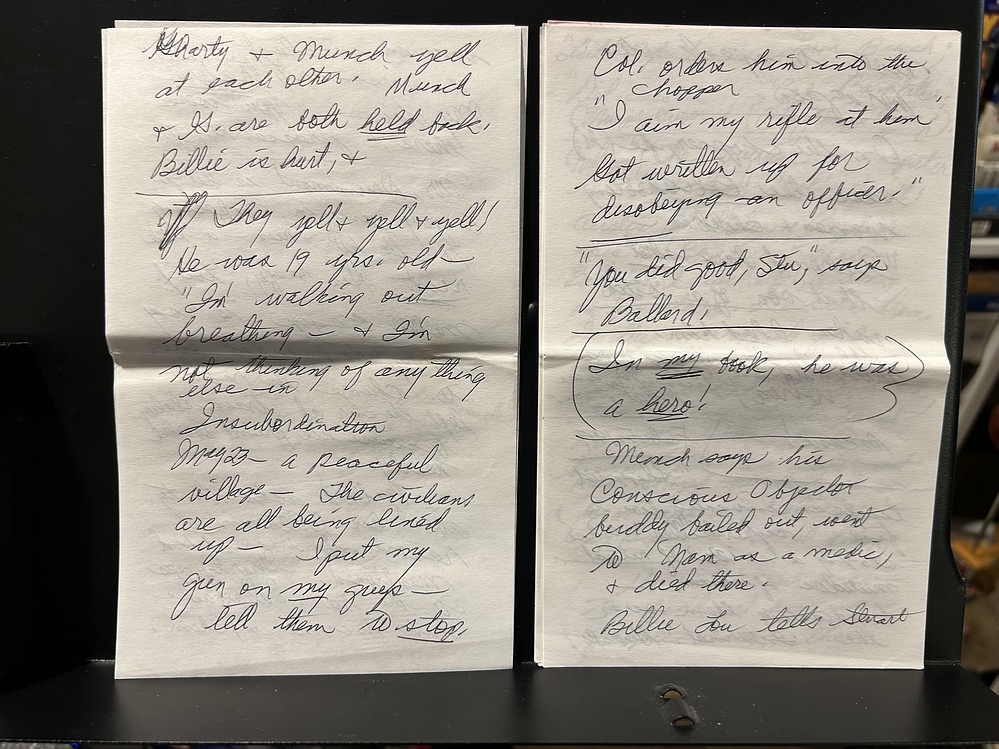 Gharty + Munch yell
at each other. Munch
+ G. are both held back.
Billie is hurt, +
They yell + yell + yell!
He was 19 yrs. old—
"I'm walking out
breathing — + I'm
not thinking of anything
else — in
Insubordination
May 23 — a peaceful
village — The civilians
are all being lined
up — I put my
gun on my guys —
tell them to stop.
Col. orders him into the
chopper
"I aim my rifle at him
Got written up for
disobeying an officer."
"You did good, Stu," says
Ballard.
(In my book, he was
a hero!)
Munch says his
Conscious Objector
buddy bailed out, went
to Nam as a medic,
+ died there.
Billie Lou tells Stuart